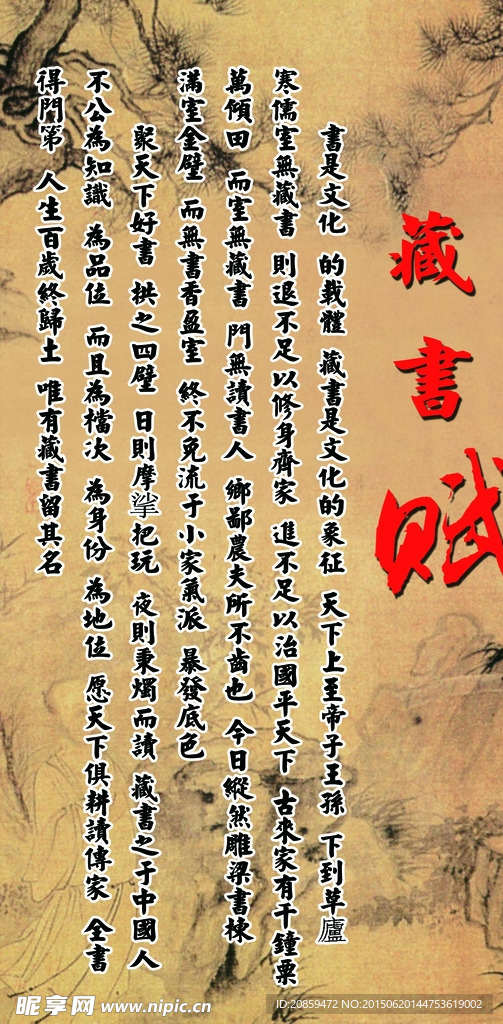 藏書賦
書是文化 的載體 藏書是文化的象征 天下上至帝子王孫 下到草廬
寒儒室無藏書 則退不足以修身齊家 進不足以治國平天下 古來家有千鐘栗
萬傾田 而室無藏書 門無讀書人 鄉鄙農夫所不齒也 今日縱然雕梁書棟
滿室金壁 而無書香盈室 終不免流于小家氣派 暴發底色
聚天下好書 拱之四壁 日則摩挲把玩 夜則秉燭而讀 藏書之于中國人
不公為知識 為品位 而且為檔次 為身份 為地位 愿天下俱耕讀傳家 全書
得門第 人生百歲終歸土 唯有藏書留其名
昵享网 www.nipic.cn
ID:20859472 NO:20150620144753619002